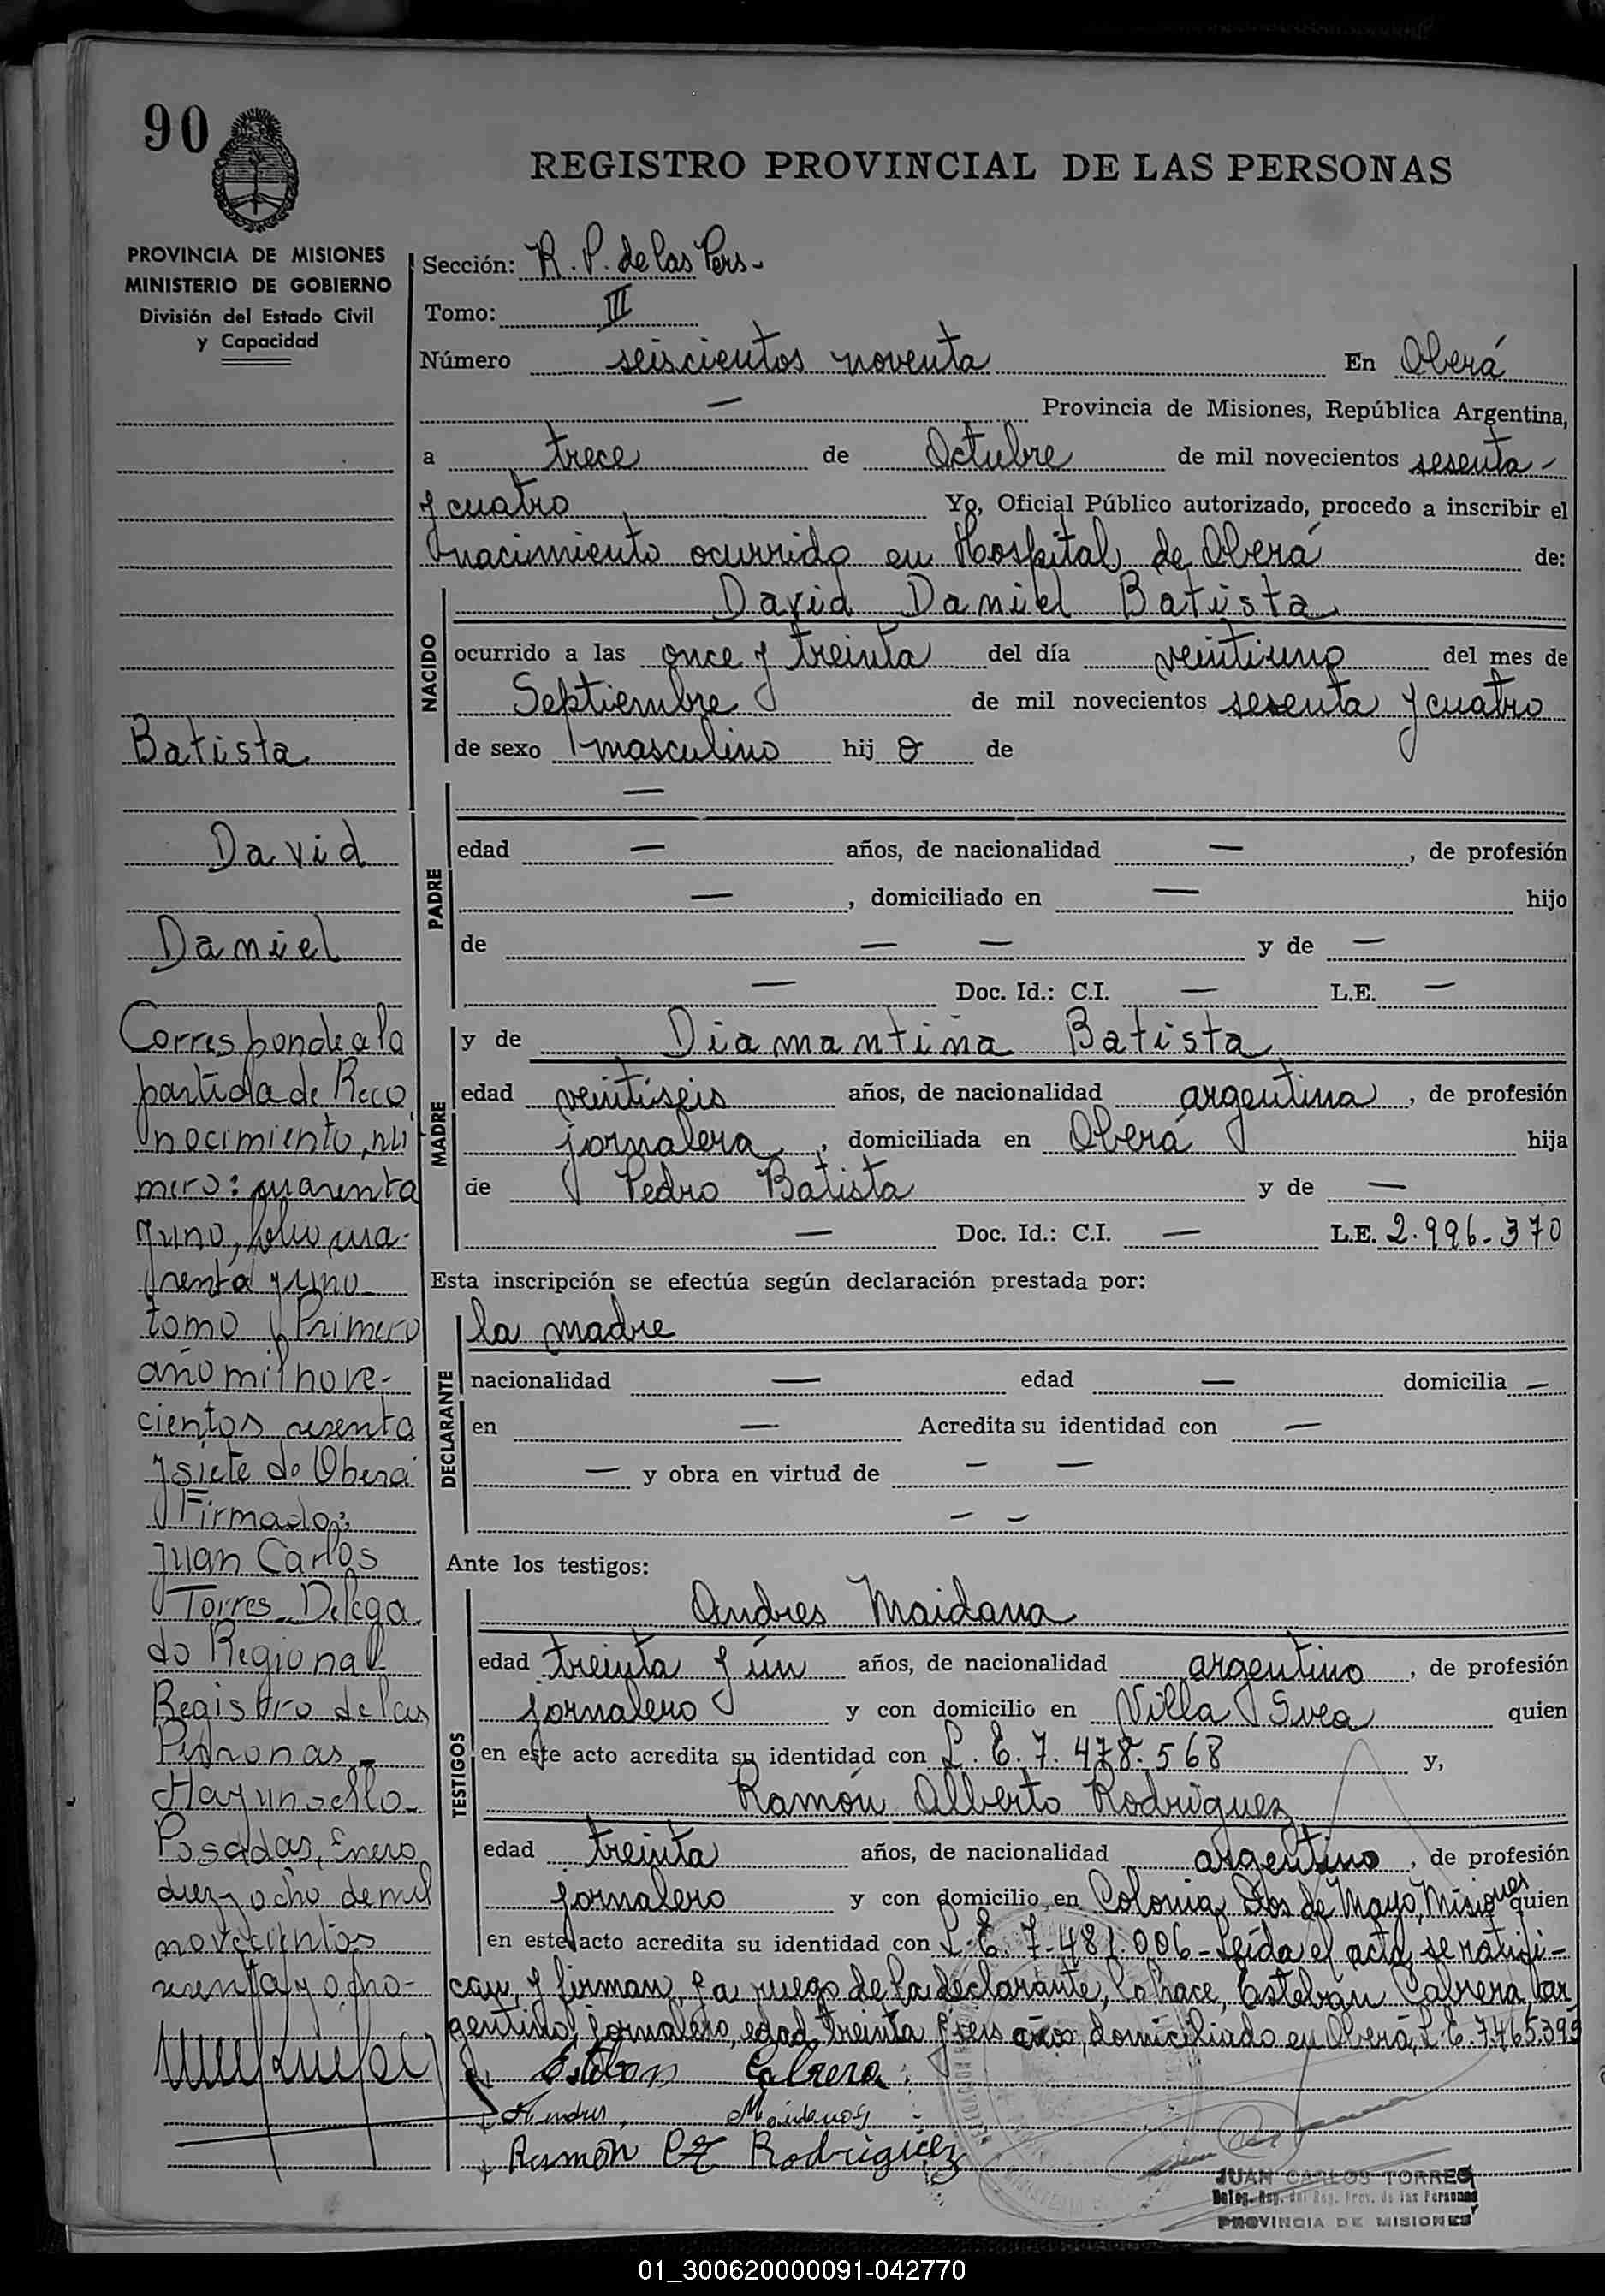 90
REGISTRO PROVINCIAL DE LAS PERSONAS
PROVINCIA DE MISIONES
MINISTERIO DE GOBIERNO
División del Estado Civil
y Capacidad
Sección: R. P. de las Pers-
Tomo: III
Número seiscientos noventa En Oberá
— Provincia de Misiones, República Argentina,
a trece de Octubre de mil novecientos sesenta-
y cuatro Yo, Oficial Público autorizado, procedo a inscribir el
nacimiento ocurrido en Hospital de Oberá de:
NACIDO
David Daniel Batista
ocurrido a las once y treinta del día veintiuno del mes de
Septiembre de mil novecientos sesenta y cuatro
de sexo masculino hij o de
PADRE
—
edad — años, de nacionalidad — , de profesión
— , domiciliado en — hijo
de — — y de —
— Doc. Id.: C.I. — L.E. —
MADRE
y de Diamantina Batista
edad veintiseis años, de nacionalidad argentina , de profesión
jornalera , domiciliada en Oberá hija
de Pedro Batista y de —
— Doc. Id.: C.I. — L.E. 2.996-370
Esta inscripción se efectúa según declaración prestada por:
DECLARANTE
la madre
nacionalidad — edad — domicilia —
en — Acredita su identidad con —
— y obra en virtud de — —
— —
Ante los testigos:
TESTIGOS
Andres Maidana
edad treinta y ún años, de nacionalidad argentino , de profesión
jornalero y con domicilio en Villa Svea quien
en este acto acredita su identidad con L. E. 7. 478. 568 y,
Ramón Alberto Rodriguez
edad treinta años, de nacionalidad argentino , de profesión
jornalero y con domicilio en Colonia Dos de Mayo, Misiones quien
en este acto acredita su identidad con L. E. 7-481.006- Leída el acta, se ratifi-
can, y firman, y a ruego de la declarante, lo hace, Esteban Cabrera, ar
gentino, jornalero, edad treinta y seis años, domiciliado en Oberá, L. E. 7.465.399
Esteban Cabrera
Andres Maidana
Ramón Rodriguez
JUAN CARLOS TORRES
Deleg. Reg. del Reg. Prov. de las Personas
PROVINCIA DE MISIONES
Batista
David
Daniel
Corresponde a la
partida de Reco
nocimiento, nú
mero: cuarenta
y uno, folio cua-
renta y uno
tomo Primero
año mil nove-
cientos sesenta
y siete de Oberá
Firmado:
Juan Carlos
Torres Delega
do Regional
Registro de las
Personas-
Hay un sello-
Posadas, Enero
diez y ocho de mil
novecientos
sesenta y ocho-
01_300620000091-042770